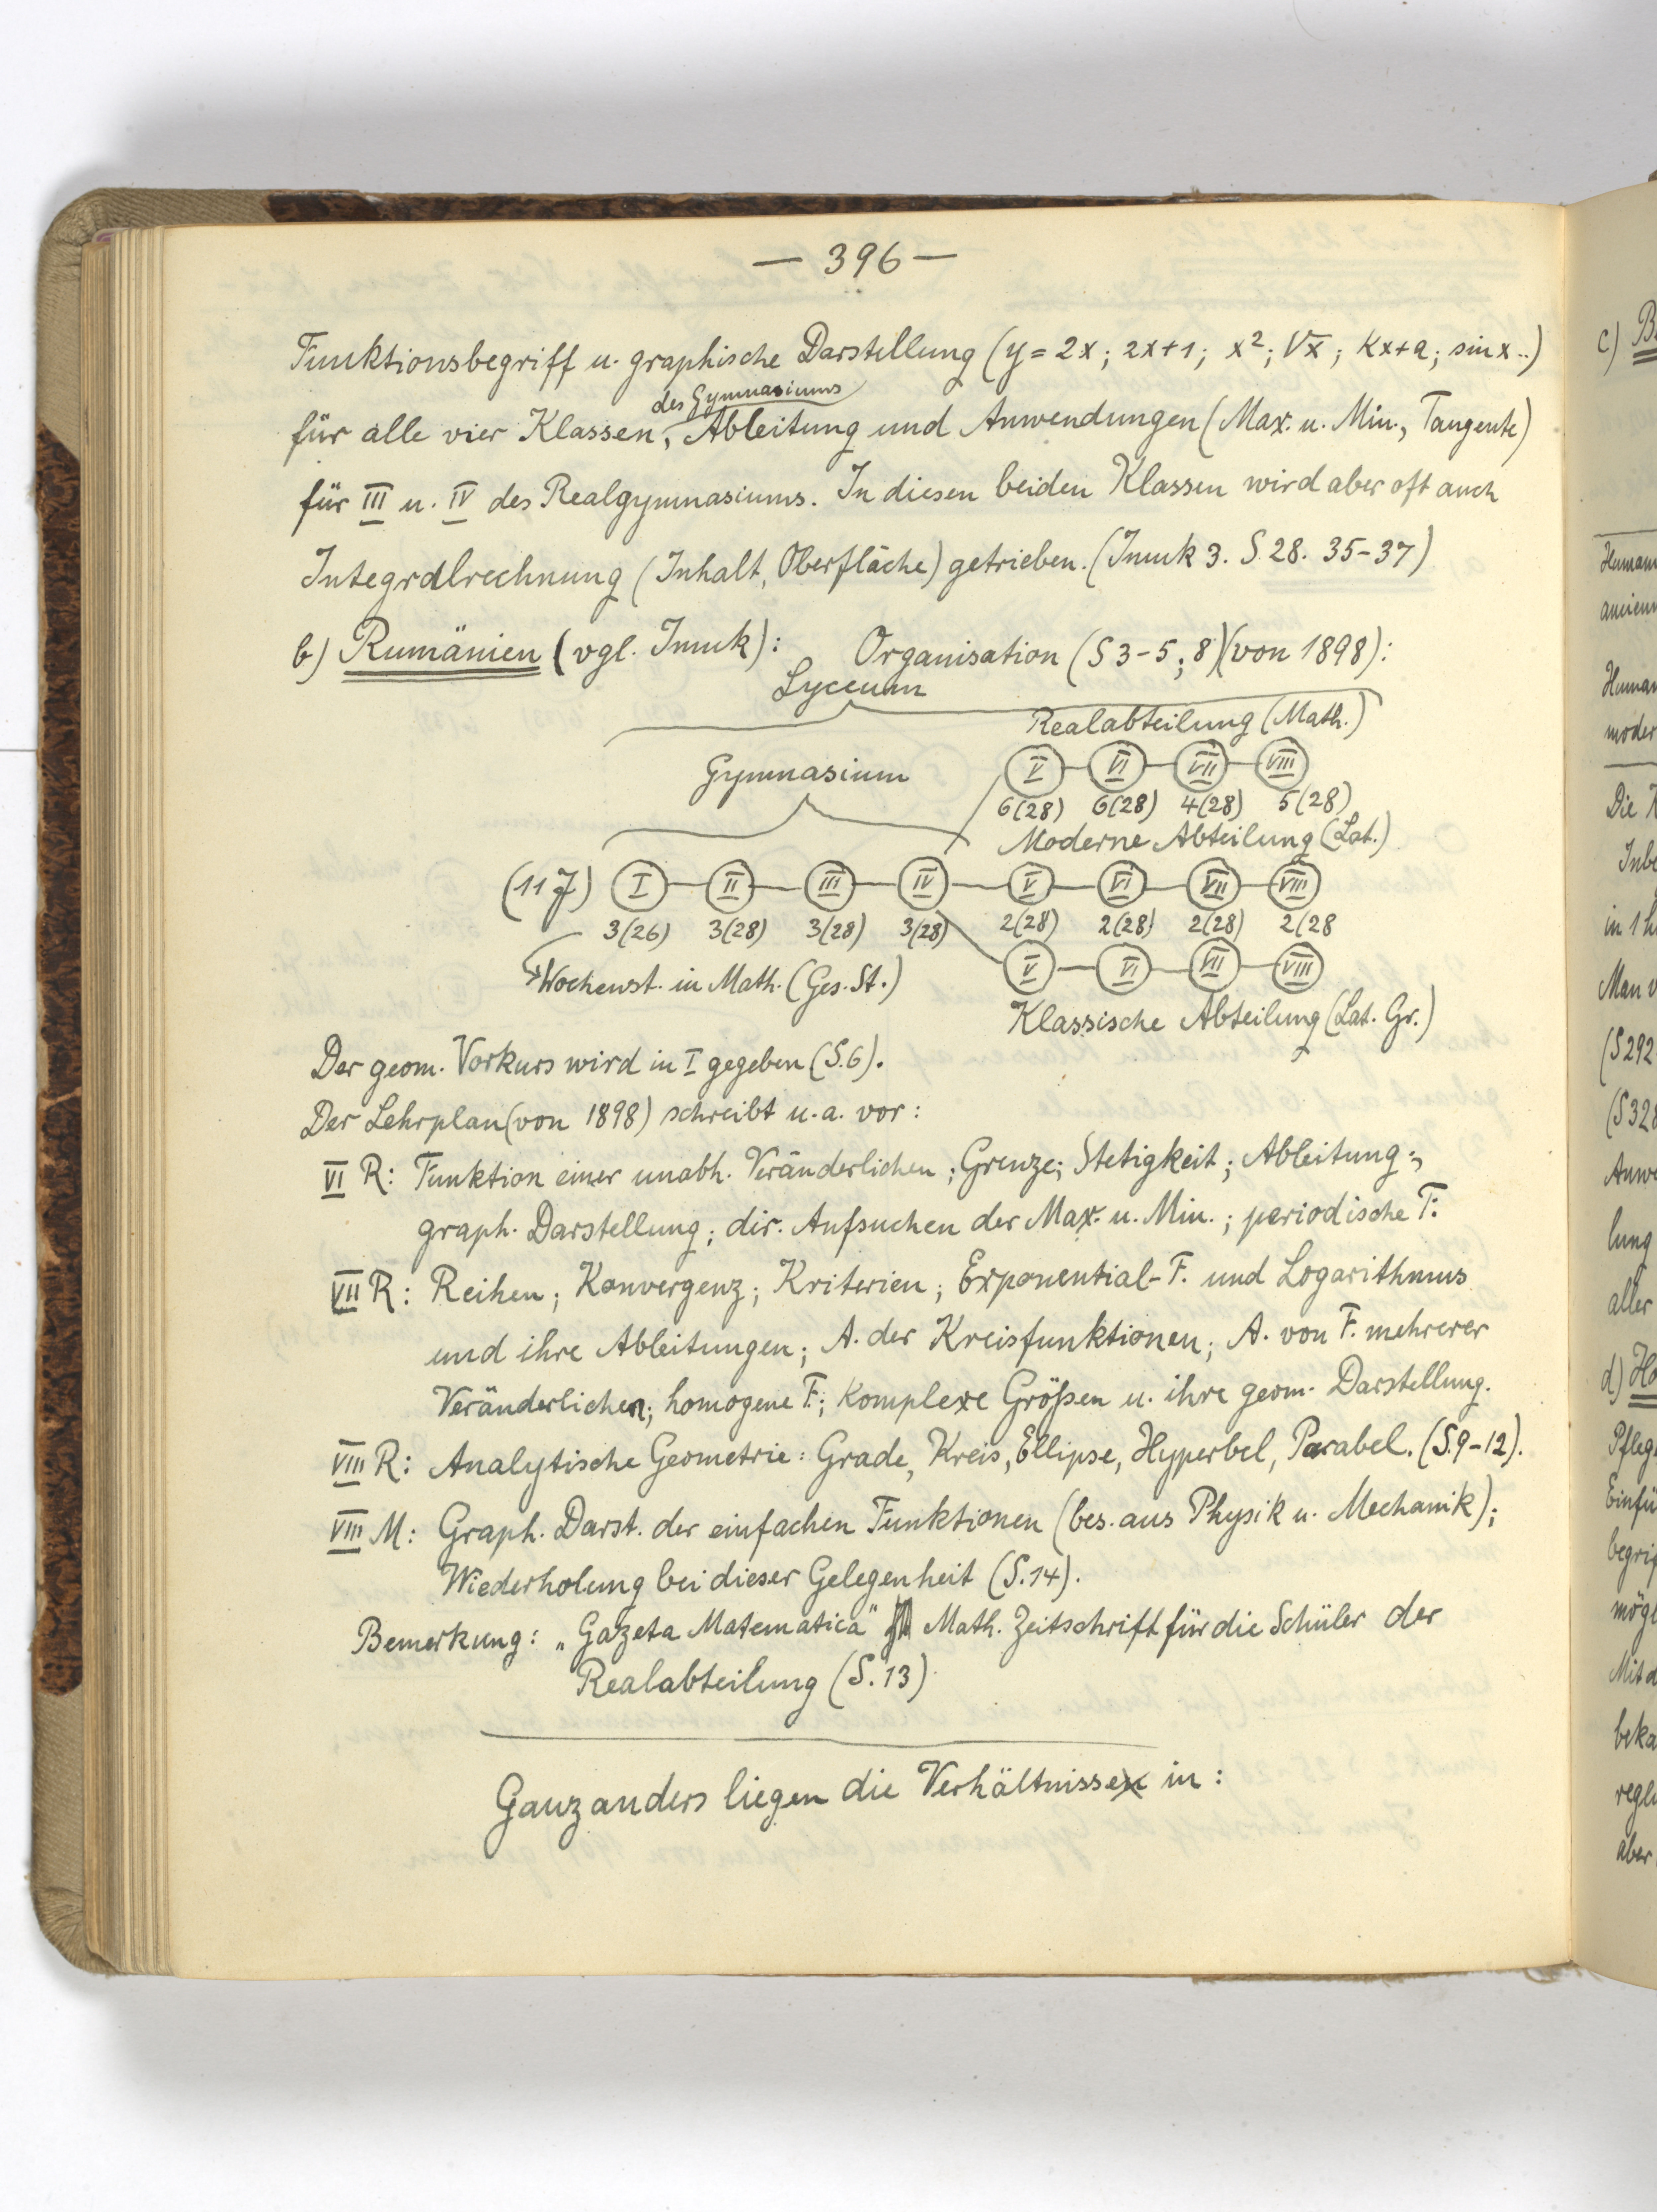 — 396 —
Funktionsbegriff u. graphische Darstellung (y = 2x; 2x+1; x²; √x; kx+a; sin x..)
des Gymnasiums
für alle vier Klassen, Ableitung und Anwendungen (Max. u. Min., Tangente)
für III u. IV des Realgymnasiums. In diesen beiden Klassen wird aber oft auch
Integralrechnung (Inhalt, Oberfläche) getrieben. (Imuk 3. S. 28. 35-37)
b) Rumänien (vgl. Imuk): Organisation (S 3-5; 8)(von 1898):
Lyceum
Realabteilung (Math.)
Gymnasium
V VI VII VIII
6(28) 6(28) 4(28) 5(28)
Moderne Abteilung (Lat.)
(11 J) I II III IV V VI VII VIII
3(26) 3(28) 3(28) 3(28) 2(28) 2(28) 2(28) 2(28
V VI VII VIII
Wochenst. in Math. (Ges. St.)
Klassische Abteilung (Lat. Gr.)
Der geom. Vorkurs wird in I gegeben (S. 6).
Der Lehrplan (von 1898) schreibt u. a. vor:
VI R: Funktion einer unabh. Veränderlichen; Grenze; Stetigkeit; Ableitung;
graph. Darstellung; dir. Aufsuchen der Max. u. Min.; periodische F.
VII R: Reihen; Konvergenz; Kriterien; Exponential-F. und Logarithmus
und ihre Ableitungen; A. der Kreisfunktionen; A. von F. mehrerer
Veränderlichen; homogene F.; Komplexe Größen u. ihre geom. Darstellung.
VIII R: Analytische Geometrie: Grade, Kreis, Ellipse, Hyperbel, Parabel. (S. 9-12).
VIII M: Graph. Darst. der einfachen Funktionen (bes. aus Physik u. Mechanik);
Wiederholung bei dieser Gelegenheit (S. 14).
Bemerkung: „Gazeta Matematica" Math. Zeitschrift für die Schüler der
Realabteilung (S. 13)
Ganz anders liegen die Verhältnisse in:
c)
Human
ancienn
Human
moder
Die
in 1
Man
(S 292
(S 328
Anwe
lung
aller
d) Ho
Pfleg
Einfü
begrif
mögl
Mit d
beka
regl
aber